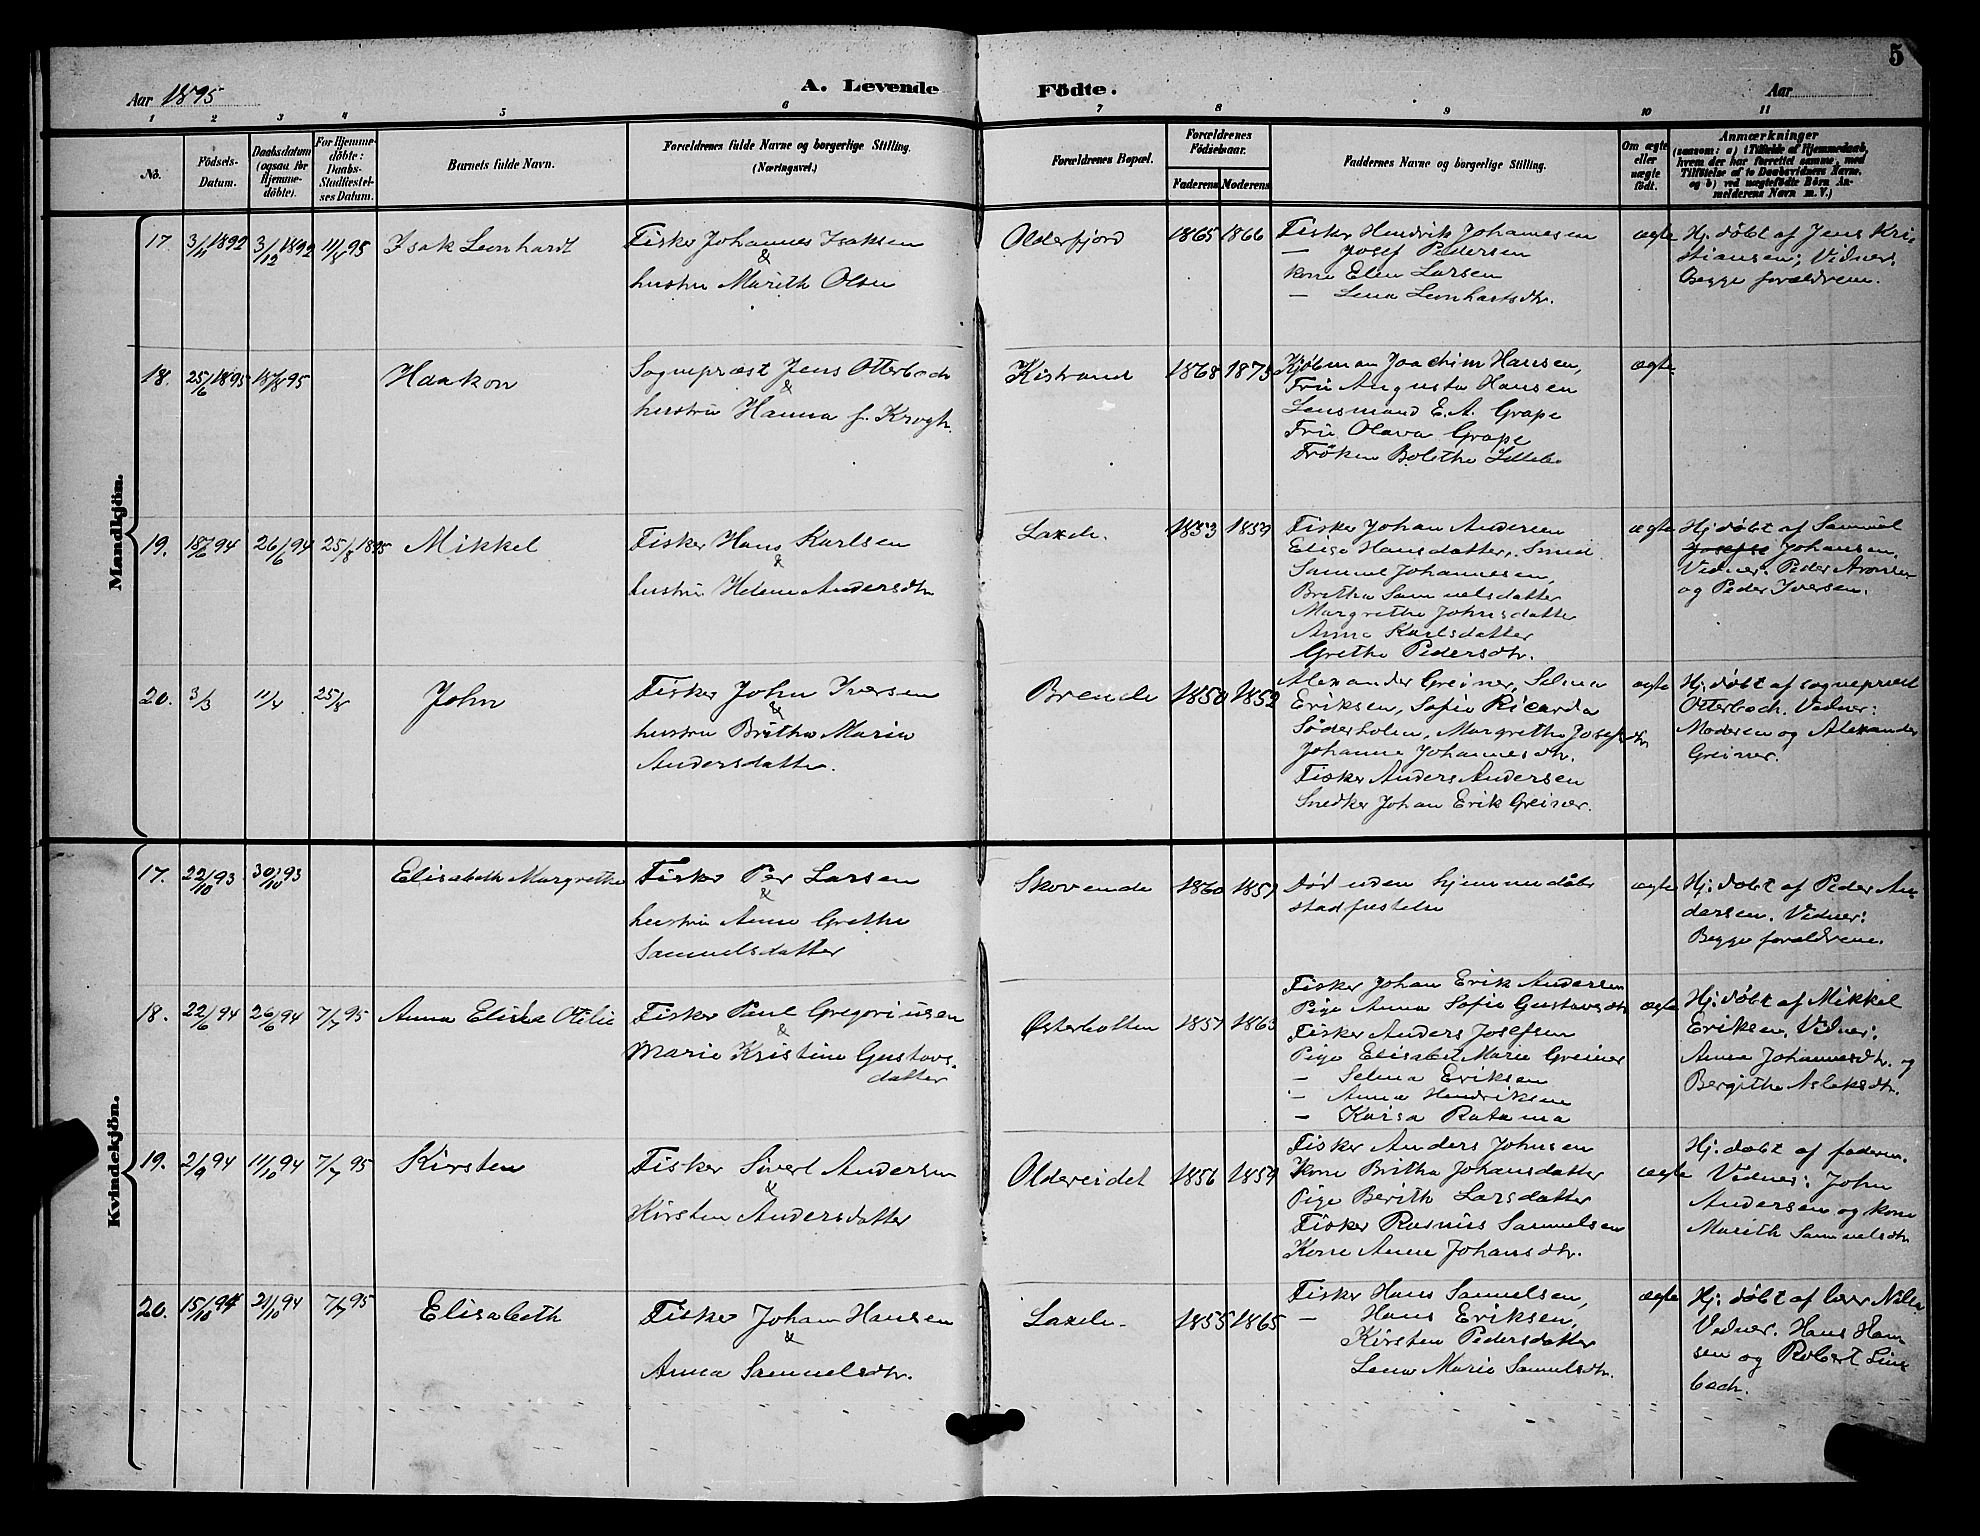 5
Aar 1895
A. Levende Födte.
Aar
1 2 3 4 5 6 7 8 9 10 11
No.
Födsels-Datum.
Daabsdatum (ogsaa for Hjemmedöbte).
For Hjemmedöbte: Daabs-Stadfæstelses Datum.
Barnets fulde Navn.
Forældrenes fulde Navne og borgerlige Stilling. (Næringsvei.)
Forældrenes Bopæl.
Forældrenes Födselsaar.
Faderens Moderens
Faddernes Navne og borgerlige Stilling.
Om ægte eller uægte födt.
Anmærkninger
(saasom: a) i Tilfælde af Hjemmedaab,
hvem der har forrettet samme, med
Tilföielse af to Daabsvidners Navne,
og b) ved uægtefödte Börn An-
melderens Navn m. V.)
Mandkjön.
17. 3/11 1892 3/12 1892 11/8 95 Isak Leonhardt
Fisker Johannes Isaksen
&
hustru Marith Olsen
Olderfjord 1865 1866
Fisker Hendrik Johannesen
— Josef Pedersen
Kone Elen Larsen
— Lena Leonhartsdtr.
ægte
Hj. döbt af Jens Kri-
stiansen; Vidner:
Begge forældrene.
18. 25/6 1895 18/8 95 Haakon
Sogneprest Jens Otterbech
&
hustru Hanna f. Krogh.
Kistrand 1868 1873
Kjøbman Joachim Hansen,
Fru Augusta Hansen
Lensmand E. A. Grape
Fru Olava Grape
Frøken Bolethe
ægte
19. 18/6 94 26/6 94 25/8 1895 Mikkel
Fisker Hans Karlsen
&
hustru Helene Andersdtr
Laxelv. 1853 1859
Fisker Johan Andersen
Elise Hansdatter, Smed
Samuel Johannesen,
Britha Samuelsdatter
Margrethe Johnsdatter
Anne Karlsdatter
Grethe Pedersdtr.
ægte
Hj. døbt af Samuel
Johansen,
Vidner: Peder Aronsen
og Peder Iversen.
20. 3/3 11/4 25/8 John
Fisker John Iversen
&
hustru Britha Maria
Andersdatter.
Brende 1850 1852
Alexander Greiner, Selma
Eriksen, Sofie Ricarda
Söderholm, Margrethe Josefsdtr
Johanne Johannesdtr.
Fisker Anders Andersen
Snedker Johan Erik Greiner.
ægte
Hj. döbt af sogneprest
Otterbech. Vidner:
Moderen og Alexander
Greiner.
Kvindekjön.
17. 22/10 93 30/10 93 Elisabeth Margrethe
Fisker Per Larsen
&
hustru Anne Grethe
Samuelsdatter
Skovende 1860 1857
död uden hjemmedåbs
stadfæstelse
ægte
Hj. døbt af Peder An-
dersen. Vidner:
Begge forældrene.
18. 22/6 94 26/6 94 7/7 95 Anna Elisha Otilie
Fisker Paul Gregoriusen
&
Marie Kristine Gustavs-
datter
Østerbotten 1857 1865
Fisker Johan Erik Andersen
Pige Anna Sofie Gustavsdtr
Fisker Anders Josefsen
Pige Elisabet Marie Greiner
— Selma Eriksen
— Anna Hendriksen
— Kaisa Ratama
ægte
Hj. døbt af Mikkel
Eriksen, Vidner:
Anna Johannesdtr. og
Bergitha Aslaksdtr.
19. 2/9 94 11/10 94 7/7 95 Kirsten
Fisker Sivert Andersen
&
Kirsten Andersdatter
Oldereidet 1856 1859
Fisker Anders Johnsen
Kone Britha Johansdatter
Pige Berith Larsdatter
Fisker Rasmus Samuelsen
Kone Anne Johansdtr.
ægte
Hj. døbt af faderen.
Vidner: John
Andersen og kone
Marith Samuelsdtr
20. 15/10 94 21/10 94 7/7 95 Elisabeth
Fisker Johan Hansen
&
Anna Samuelsdtr.
Laxelv. 1855 1865
Fisker Hans Samuelsen,
— Hans Eriksen,
Kirsten Pedersdatter
Lena Maria Samuelsdtr.
ægte
Hj. døbt af lærer Nilsa
Vidner. Hans Han-
sen og Robert Lins-
bach.